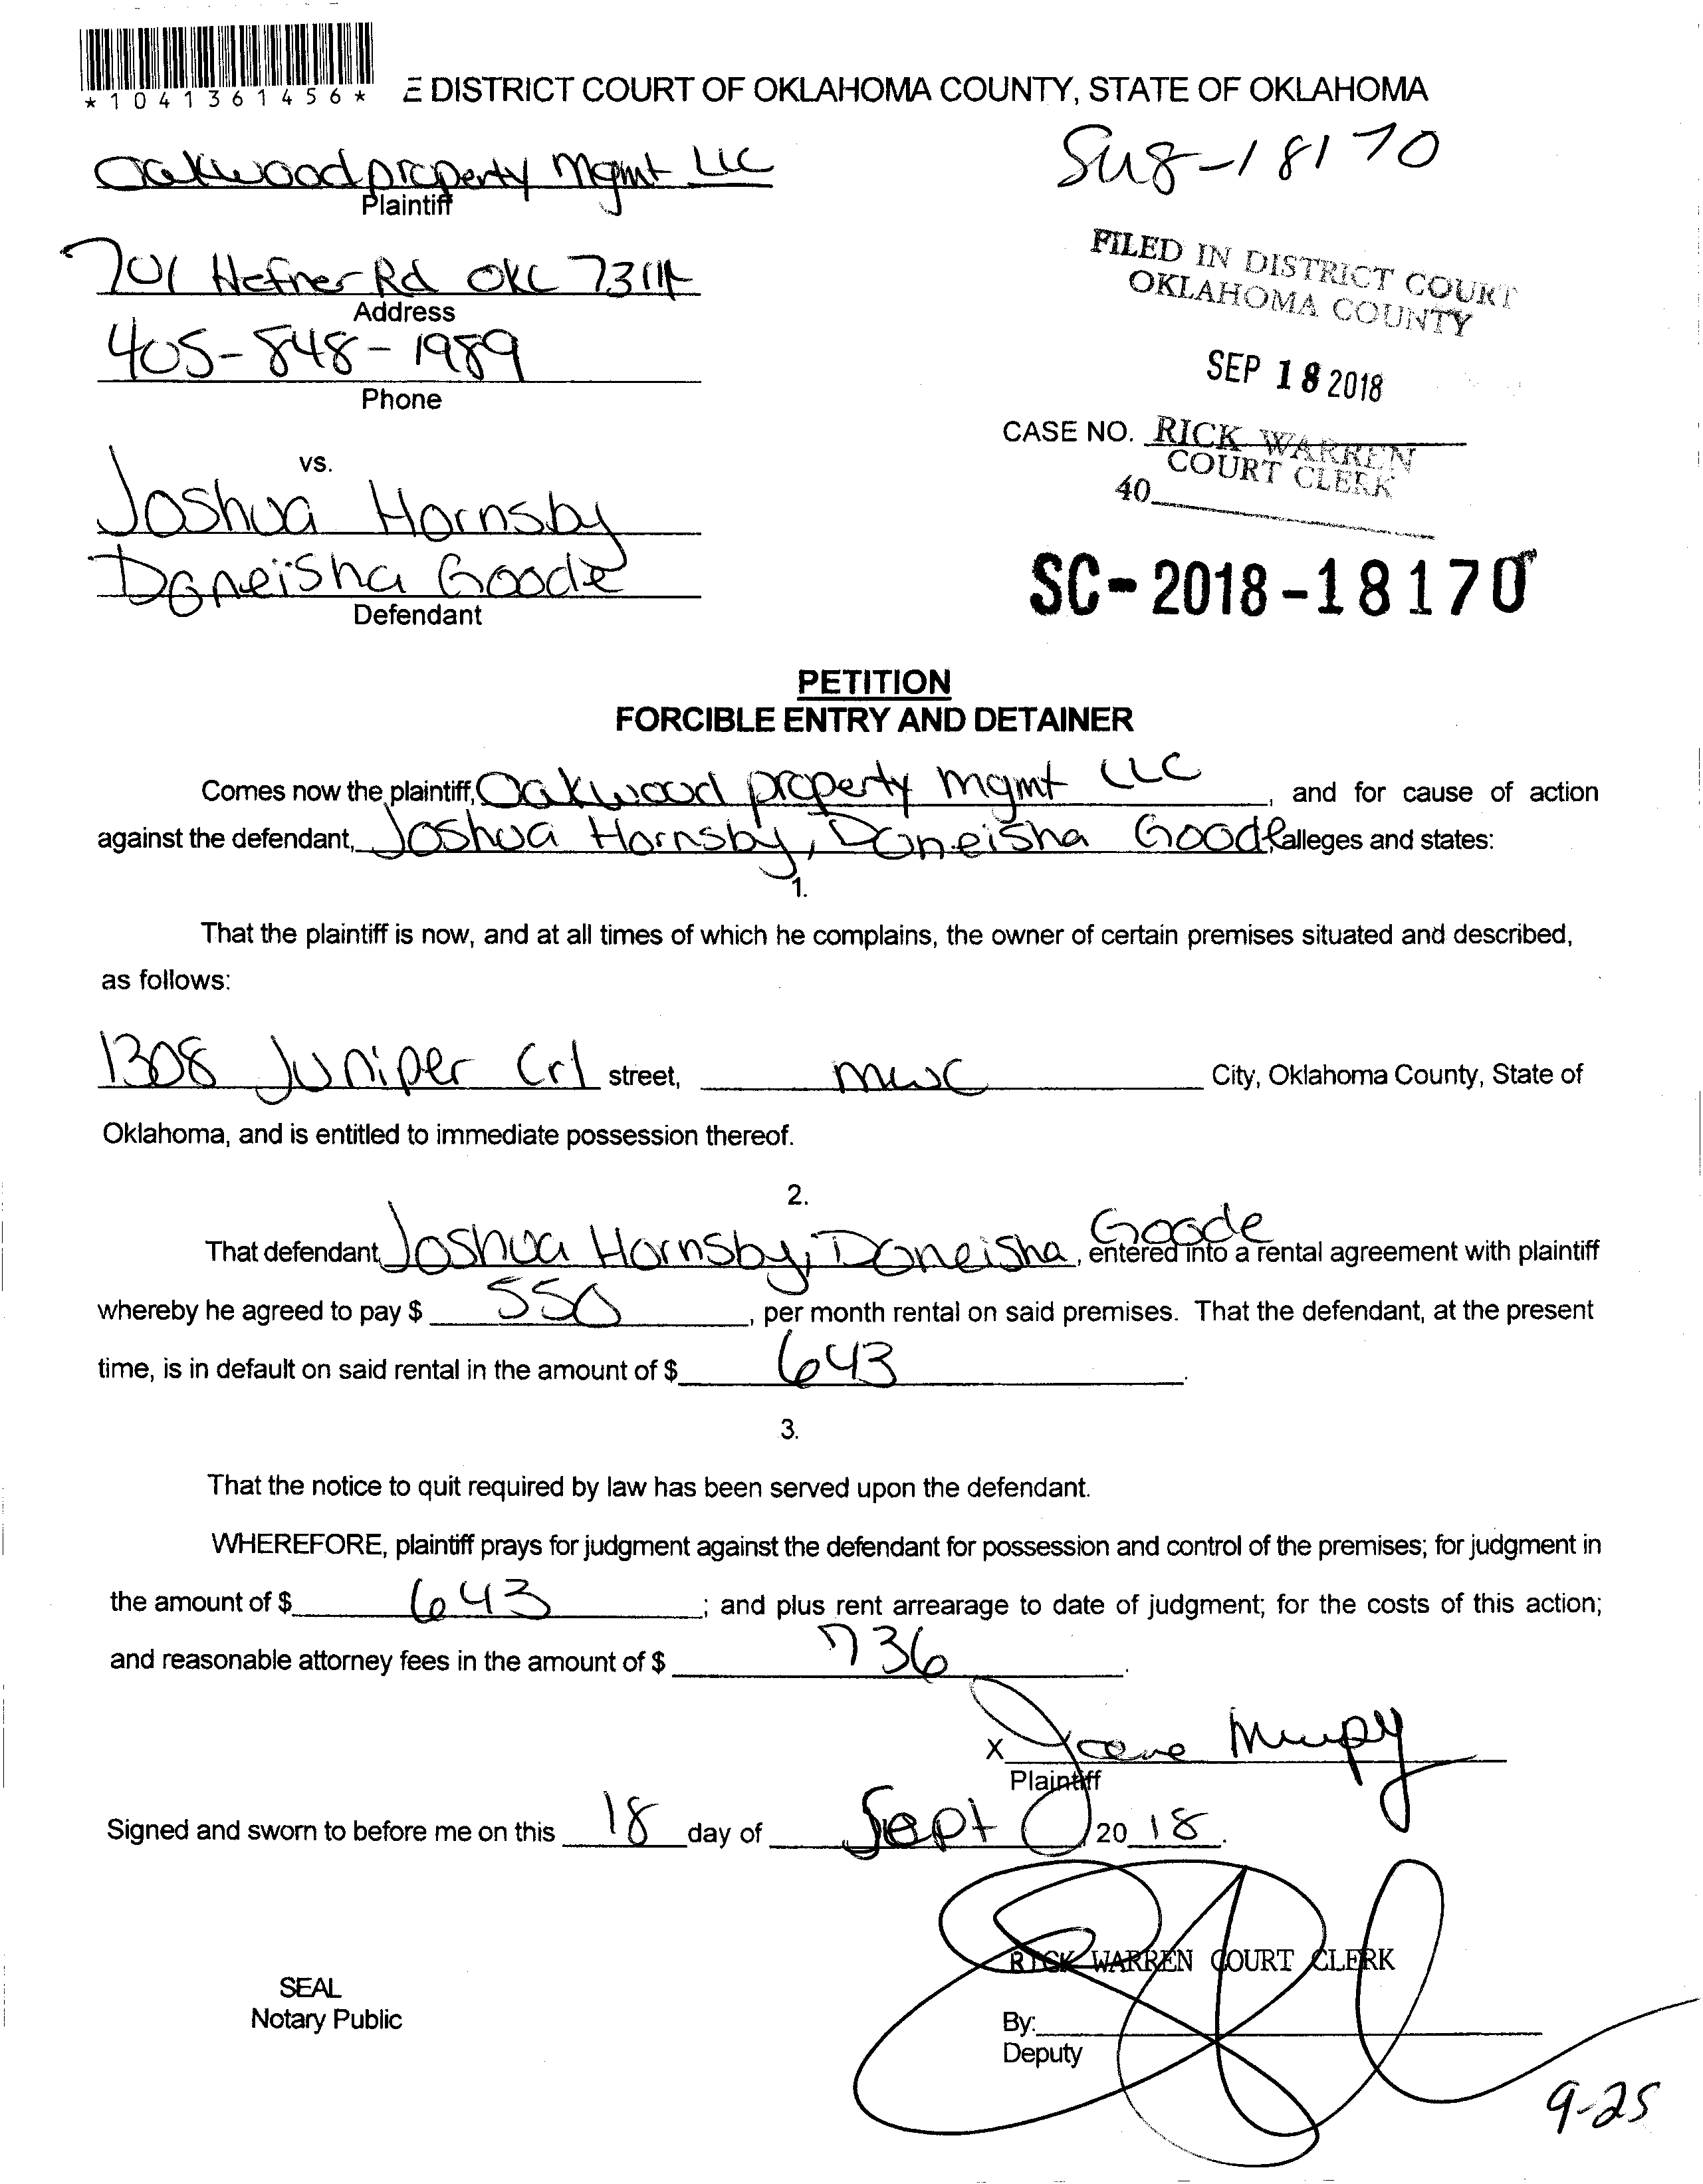 *1041361456*
E DISTRICT COURT OF OKLAHOMA COUNTY, STATE OF OKLAHOMA
Oakwood property Mgmt LLC
Plaintiff
701 Hefner Rd OKC 73114
Address
405-848-1989
Phone
vs.
Joshua Hornsby
Daneisha Goode
Defendant
FILED IN DISTRICT COURT
OKLAHOMA COUNTY
SEP 18 2018
CASE NO. RICK WARREN
COURT CLERK
40
SC-2018-18170
PETITION
FORCIBLE ENTRY AND DETAINER
Comes now the plaintiff, Oakwood property mgmt LLC, and for cause of action
against the defendant, Joshua Hornsby, Daneisha Goode alleges and states:
1.
That the plaintiff is now, and at all times of which he complains, the owner of certain premises situated and described,
as follows:
1308 Juniper Crl street, mwc City, Oklahoma County, State of
Oklahoma, and is entitled to immediate possession thereof.
2.
That defendant, Joshua Hornsby, Daneisha Goode, entered into a rental agreement with plaintiff
whereby he agreed to pay $ 550, per month rental on said premises. That the defendant, at the present
time, is in default on said rental in the amount of $ 643.
3.
That the notice to quit required by law has been served upon the defendant.
WHEREFORE, plaintiff prays for judgment against the defendant for possession and control of the premises; for judgment in
the amount of $ 643; and plus rent arrearage to date of judgment; for the costs of this action;
and reasonable attorney fees in the amount of $ 736.
X
Plaintiff
Signed and sworn to before me on this 18 day of Sept, 20 18.
RICK WARREN COURT CLERK
SEAL
Notary Public
By:
Deputy
9-25